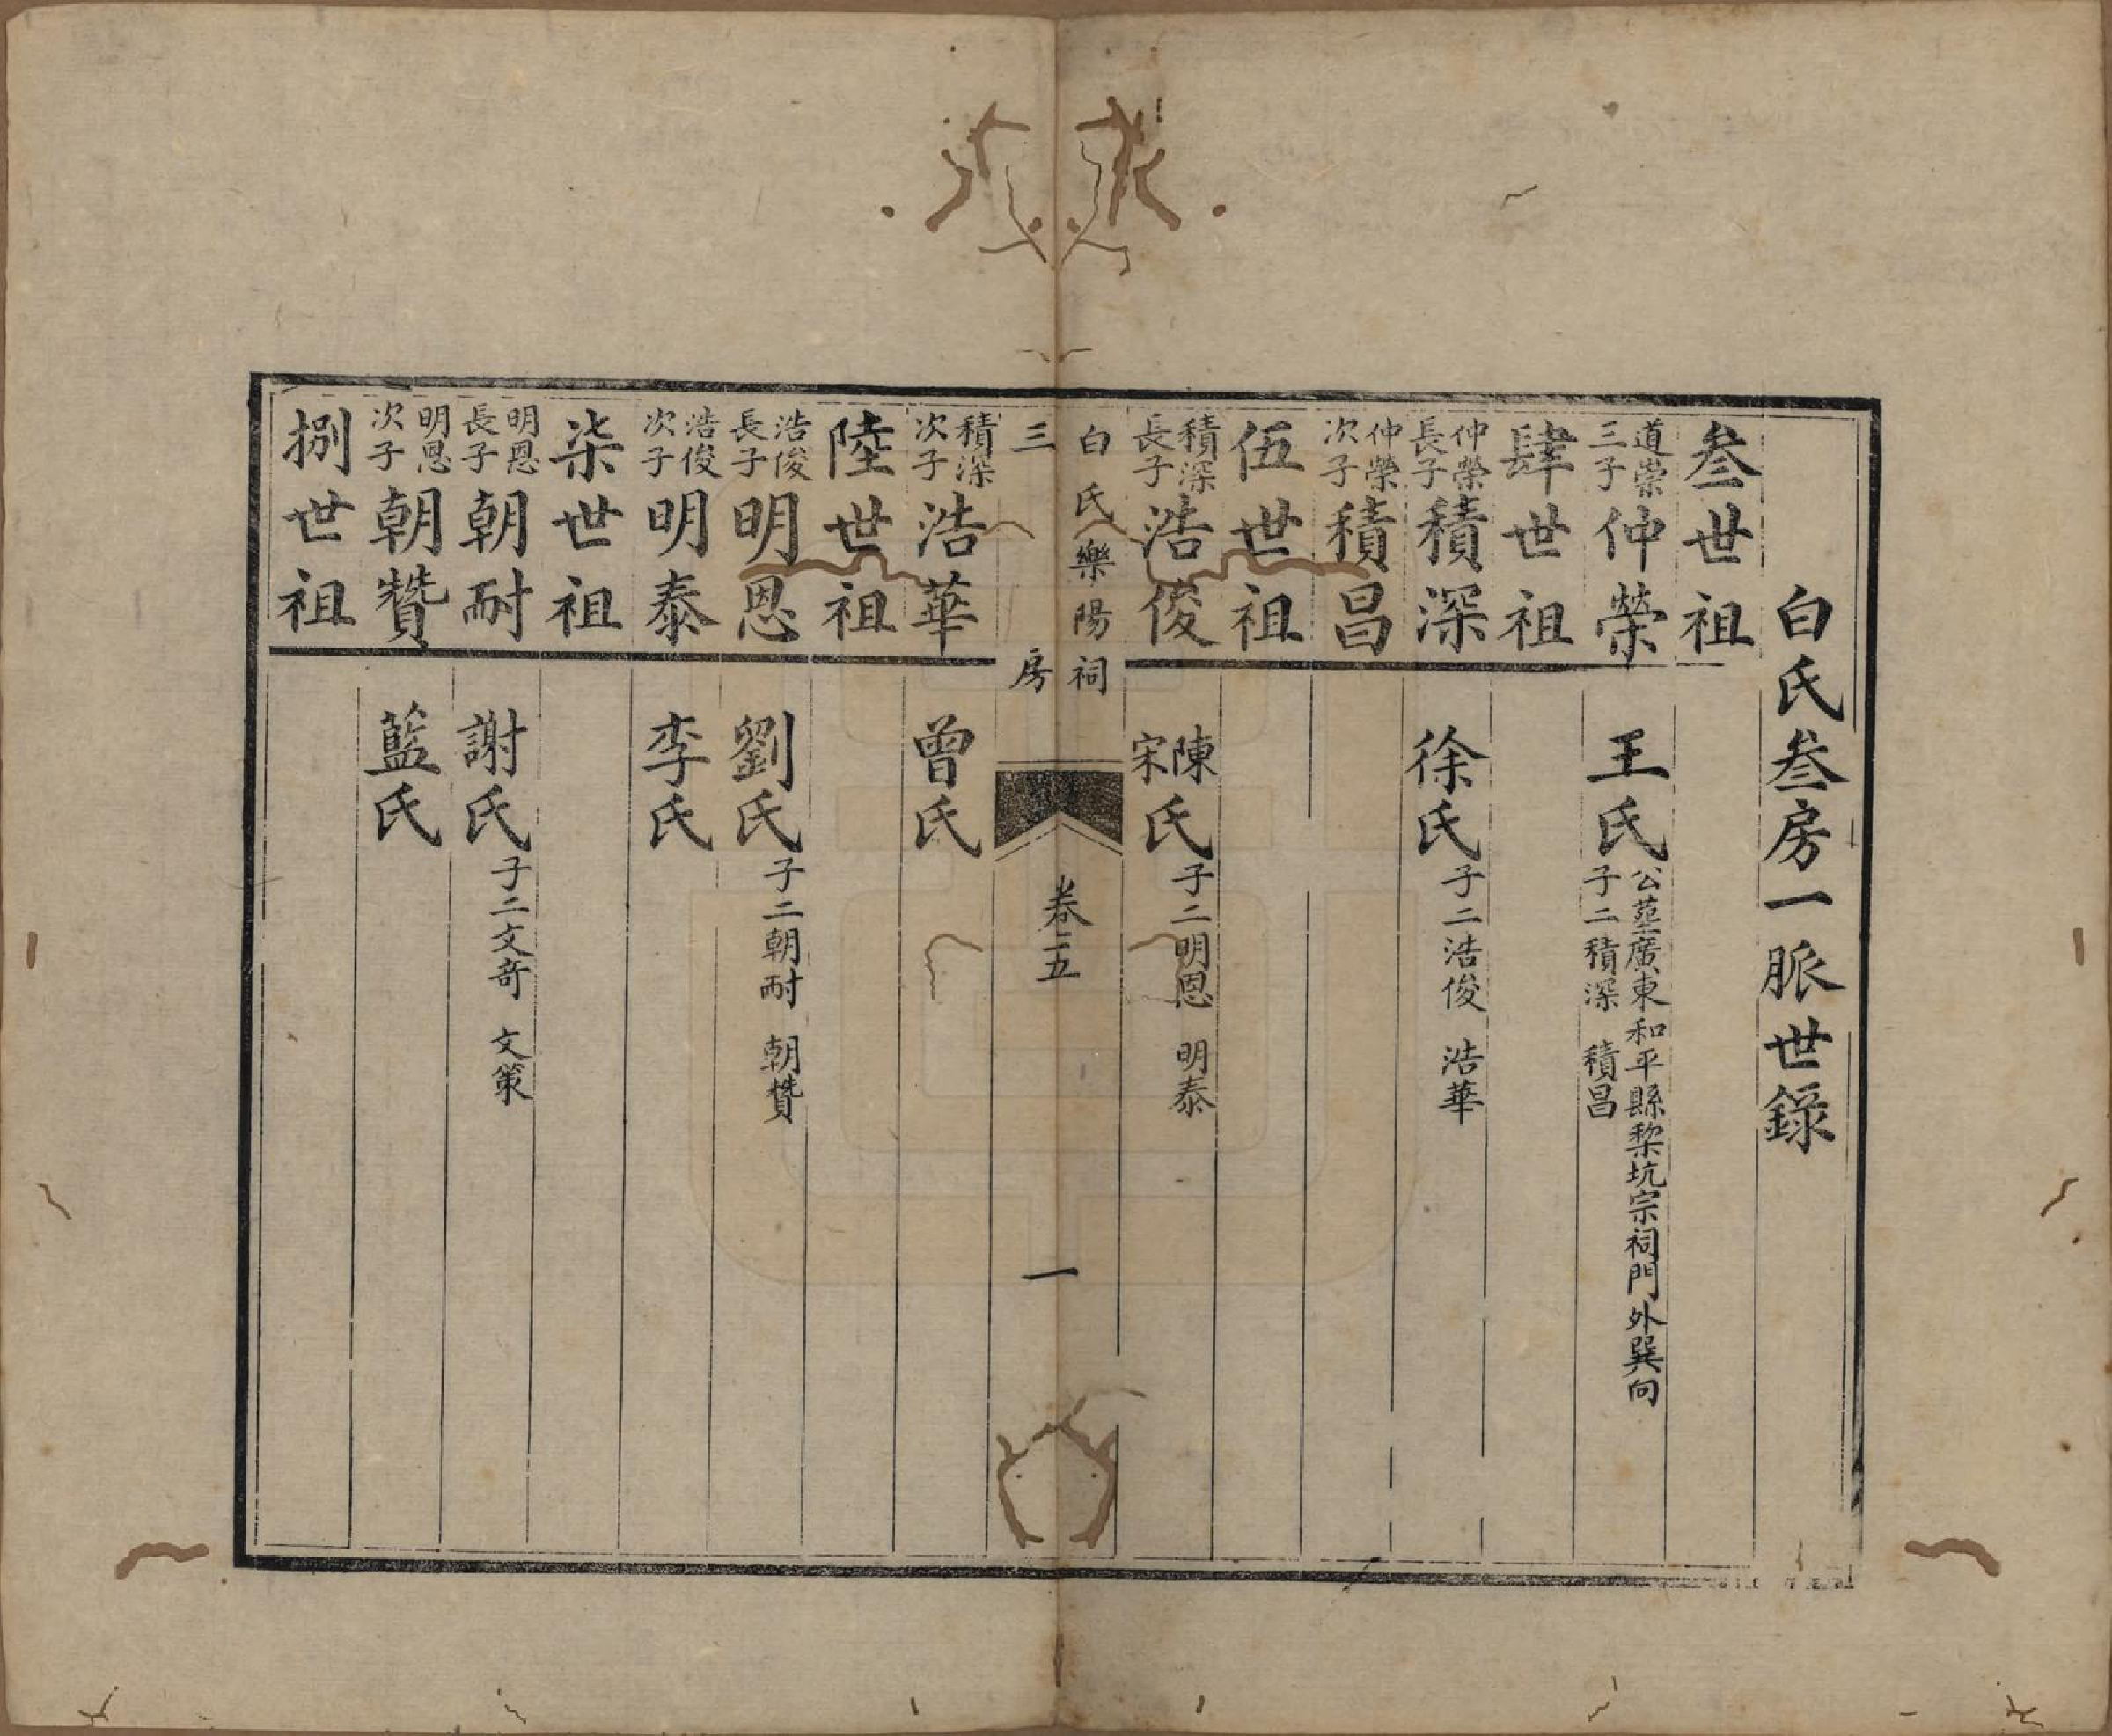 白氏叁房一脈世錄
叁世祖
道崇三子仲榮 王氏 公塟廣東和平縣黎坑宗祠門外巽向
子二積深 積昌
肆世祖
仲榮長子積深 徐氏 子二浩俊 浩華
仲榮次子積昌
伍世祖
積深長子浩俊 陳宋氏 子二明恩 明泰
白氏樂陽祠
三房
卷五
一
積深次子浩華 曾氏
陸世祖
浩俊長子明恩 劉氏 子二朝耐 朝贊
浩俊次子明泰 李氏
柒世祖
明恩長子朝耐 謝氏 子二文竒 文策
明恩次子朝贊 藍氏
捌世祖